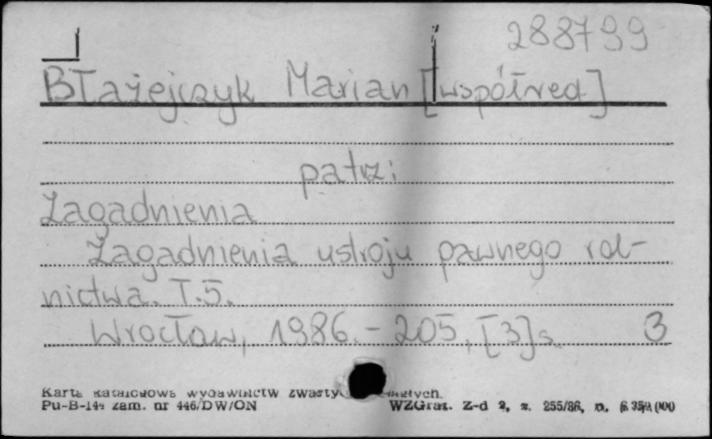 288799
Błażejczyk Marian [współred]
patrz:
Zagadnienia
Zagadnienia ustroju pawnego rol-
nictwa. T.5.
Wrocław, 1986. - 205, [3] s. 3
Karta katalogowa wydawnictw zwartych
Pu-B-144 zam. nr 446/DW/ON WZGraf. Z-d 2, z. 255/86, n.